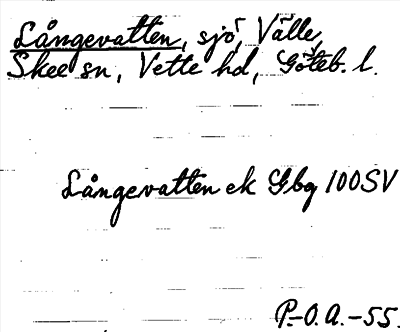 Långevatten, sjö, Välle,
Skee sn, Vette hd, Göteb. l.
Långevatten ek Gbg 100SV
P.-O.A.-55.